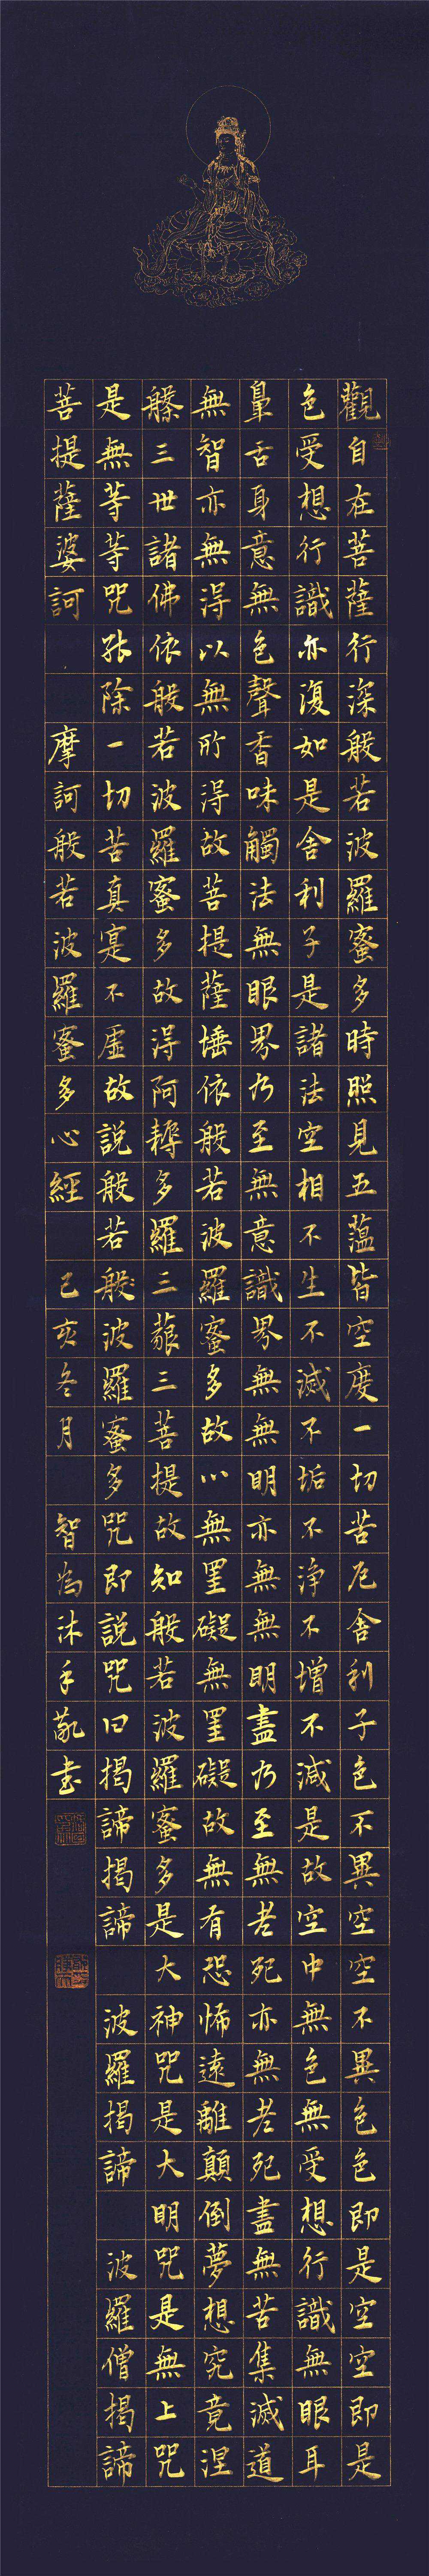 觀自在菩薩行深般若波羅蜜多時照見五蘊皆空度一切苦厄舍利子色不異空空不異色色即是空空即是
色受想行識亦復如是舍利子是諸法空相不生不滅不垢不淨不增不減是故空中無色無受想行識無眼耳
鼻舌身意無色聲香味觸法無眼界乃至無意識界無無明亦無無明盡乃至無老死亦無老死盡無苦集滅道
無智亦無得以無所得故菩提薩埵依般若波羅蜜多故心無罣礙無罣礙故無有恐怖遠離顛倒夢想究竟涅
槃三世諸佛依般若波羅蜜多故得阿耨多羅三藐三菩提故知般若波羅蜜多是大神咒是大明咒是無上咒
是無等等咒能除一切苦真實不虛故說般若般波羅蜜多咒即說咒曰揭諦揭諦 波羅揭諦 波羅僧揭諦
菩提薩婆訶 摩訶般若波羅蜜多心經 己亥冬月 智為沐手敬書